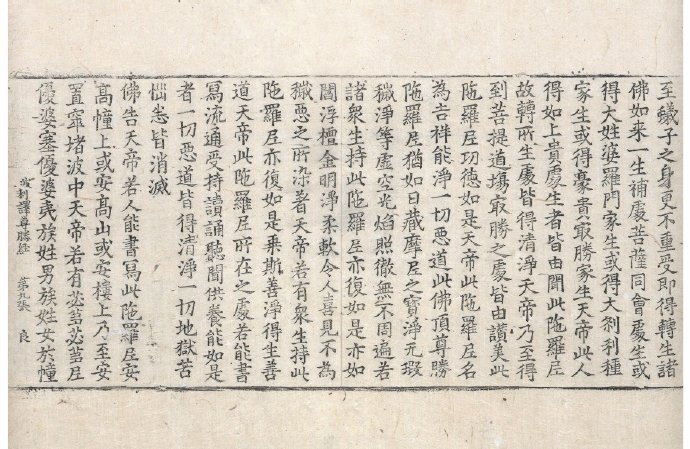 至蟻子之身更不重受即得轉生諸
佛如来一生補處菩薩同會處生或
得大姓婆羅門家生或得大刹利種
家生或得豪貴冣勝家生天帝此人
得如上貴處生者皆由聞此陁羅尼
故轉所生處皆得清淨天帝乃至得
到菩提道塲冣勝之處皆由讃美此
陁羅尼功德如是天帝此陁羅尼名
為吉祥能淨一切惡道此佛頂尊勝
陁羅尼猶如日藏摩尼之寶淨无瑕
穢淨等虚空光焰照徹無不周遍若
諸衆生持此陁羅尼亦復如是亦如
閻浮檀金明淨柔軟令人喜見不為
穢惡之所染著天帝若有衆生持此
陁羅尼亦復如是乗斯善淨得生善
道天帝此陁羅尼所在之處若能書
寫流通受持讀誦聽聞供養能如是
者一切惡道皆得清淨一切地獄苦
惱悉皆消滅
佛告天帝若人能書寫此陁羅尼安
高幢上或安高山或安樓上乃至安
置窣堵波中天帝若有苾芻苾芻尼
優婆塞優婆夷族姓男族姓女於幢
波利譯尊勝經 第九張 良